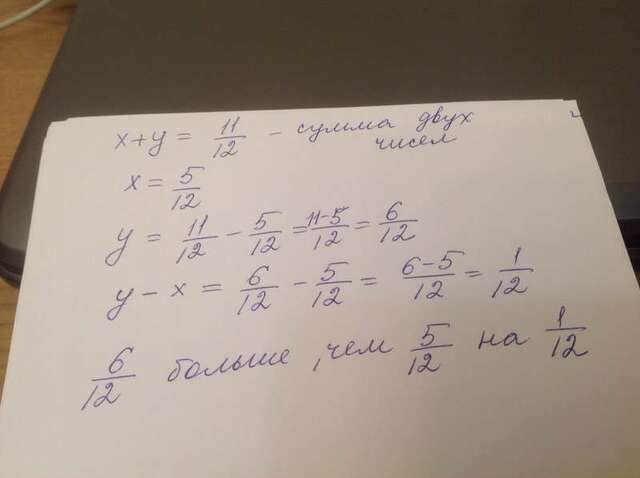 x+y = 11/12 - сумма двух
чисел
x = 5/12
y = 11/12 - 5/12 = 11-5/12 = 6/12
y - x = 6/12 - 5/12 = 6-5/12 = 1/12
6/12 больше, чем 5/12 на 1/12